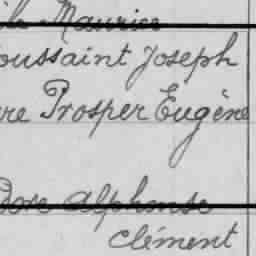 Maurice
oussaint Joseph
re Prosper Eugène
dore Alphonse
Clément